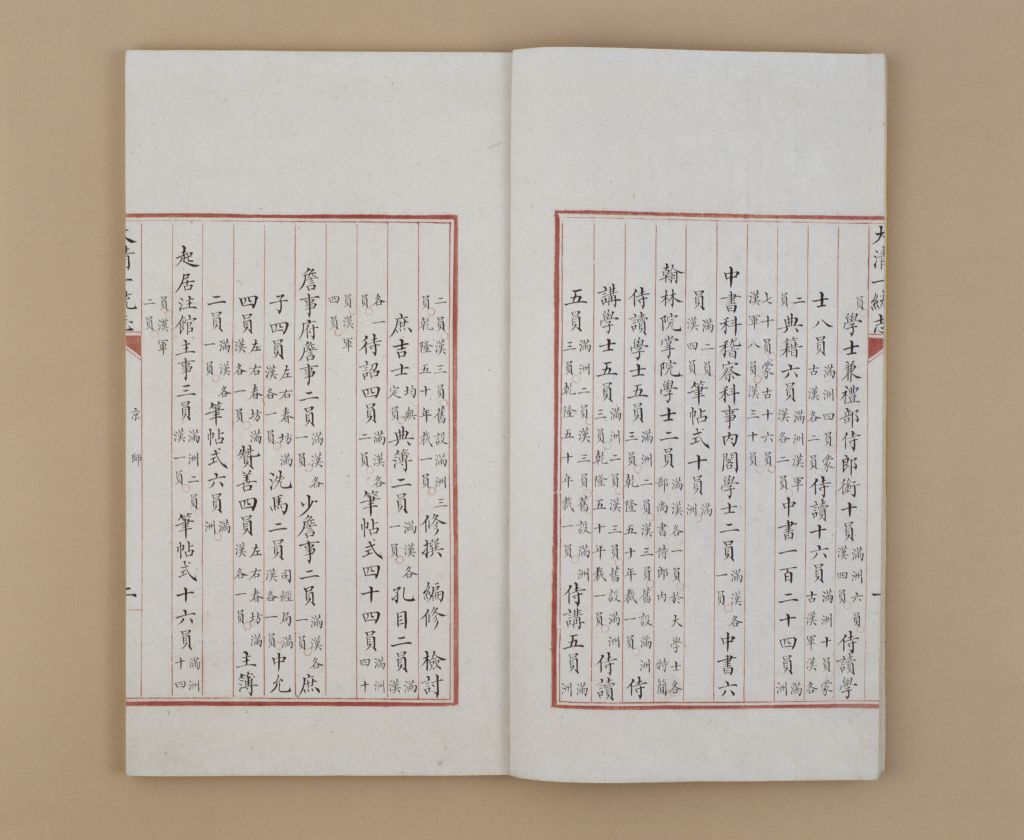 大清一統志 一
員學士兼禮部侍郎銜十員滿洲六員漢四員侍讀學
士八員滿洲四員蒙古漢各二員侍讀十六員滿洲十員蒙古漢軍漢各
二員典籍六員滿洲漢軍漢各二員中書一百二十四員滿洲
七十員蒙古十六員漢軍八員漢三十員
中書科稽察科事內閣學士二員滿漢各一員中書六
員滿二員漢四員筆帖式十員滿洲
翰林院掌院學士二員滿漢各一員於大學士各部尚書侍郎內特簡
侍讀學士五員滿洲二員漢三員舊設滿洲三員乾隆五十年裁一員侍
講學士五員滿洲二員漢三員舊設滿洲三員乾隆五十年裁一員侍讀
五員滿洲二員漢三員舊設滿洲三員乾隆五十年裁一員侍講五員滿洲
二員漢三員舊設滿洲三員乾隆五十年裁一員修撰 編修 檢討
庶吉士均無定員典簿二員滿漢各一員孔目二員滿漢
各一員待詔四員滿漢各二員筆帖式四十四員滿洲四十
員漢軍四員
詹事府詹事二員滿漢各一員少詹事二員滿漢各一員庶
子四員左右春坊滿漢各一員洗馬二員司經局滿漢各一員中允
四員左右春坊滿漢各一員贊善四員左右春坊滿漢各一員主簿
二員滿漢各一員筆帖式六員滿洲
起居注館主事三員滿洲二員漢一員筆帖式十六員滿洲十四
員漢軍二員
大清一統志 京師 二